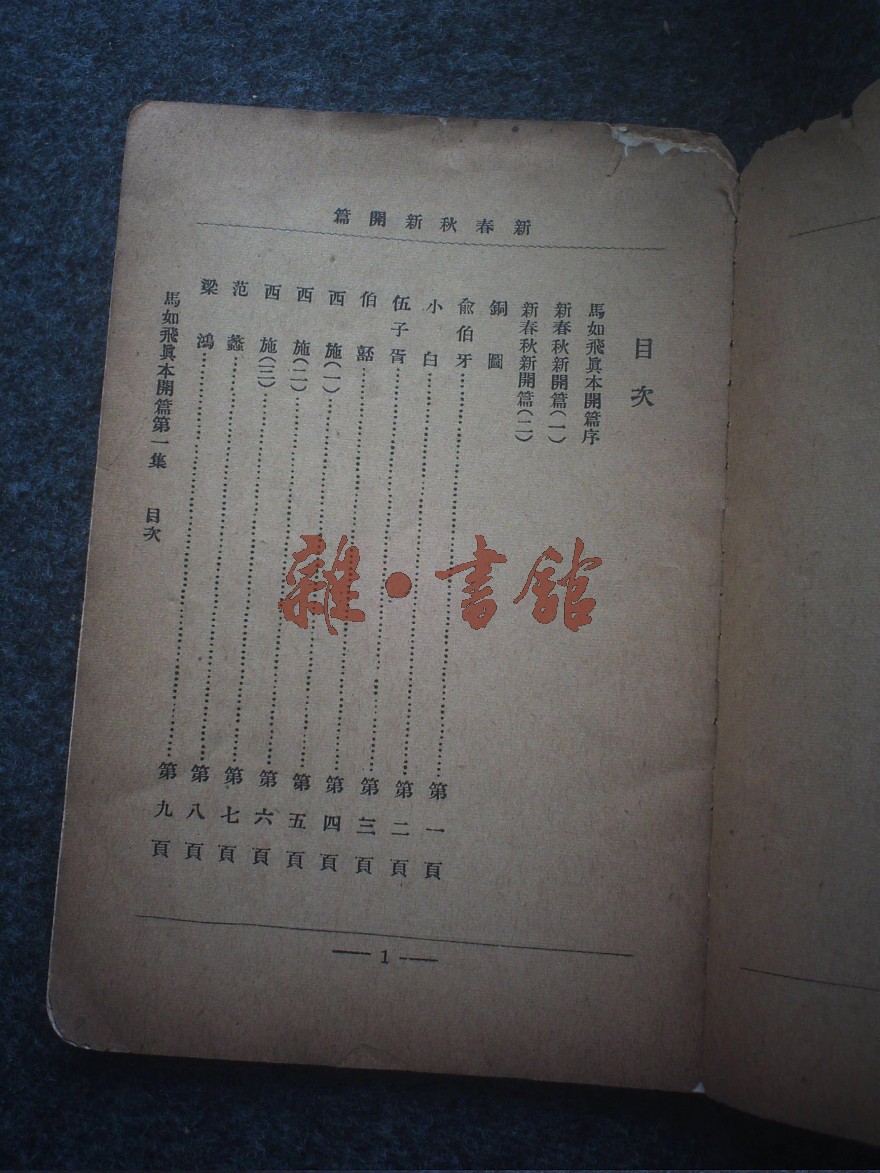 新春秋新開篇
目次
馬如飛眞本開篇序
新春秋新開篇(一)
新春秋新開篇(二)
銅圖
兪伯牙……第一頁
小白……第二頁
伍子胥……第三頁
伯嚭……第四頁
西施(一)……第五頁
西施(二)……第六頁
西施(三)……第七頁
范蠡……第八頁
梁鴻……第九頁
馬如飛眞本開篇第一集 目次
— 1 —
雜·書館